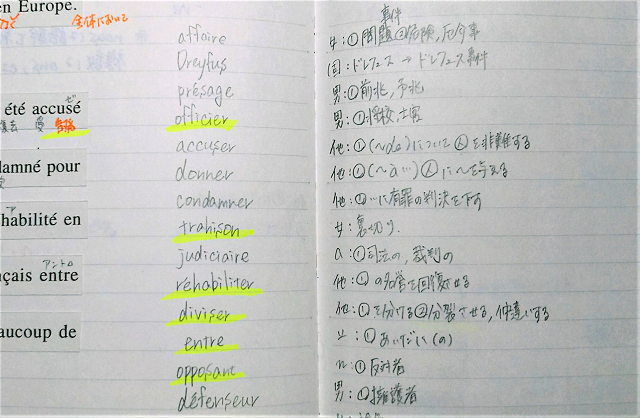 en Europe.
全体において
été accusé
damné pour
habilité en
アントル
nçais entre
aucoup de
affaire
Dreyfus
présage
officier
accuser
donner
condamner
trahison
judiciaire
réhabiliter
diviser
entre
opposant
défenseur
事件
女:①問題②危険,厄介事
固:ドレフュス→ドレフュス事件
男:①前兆,予兆
男:①将校,士官
他:①(~de)について人を非難する
他:①(~à…)人に~を与える
他:①…に有罪の判決を下す
女:裏切り.
a:①司法の,裁判の
他:①の名誉を回復させる
他:①を分ける②分裂させる,仲違いする
①あいだに(の)
n:①反対者
男:①擁護者